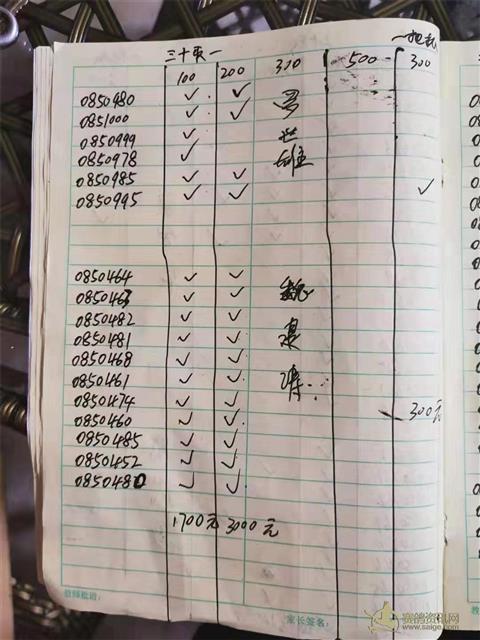 三十取一
100 200 300 500 300
0850480 ✓ ✓ 罗
0851000 ✓ ✓
0850999 ✓ 世
0850978 ✓ 雄
0850985 ✓ ✓
0850995 ✓ ✓ ✓
0850464 ✓ ✓
0850463 ✓ ✓ 魏
0850482 ✓ ✓
0850481 ✓ ✓
0850468 ✓ ✓
0850461 ✓ ✓
0850474 ✓ ✓ 300元
0850460 ✓ ✓
0850485 ✓ ✓
0850452 ✓ ✓
0850480 ✓ ✓
1700元 3000元
家长签名：
赛鸽资讯网
www.saige.com